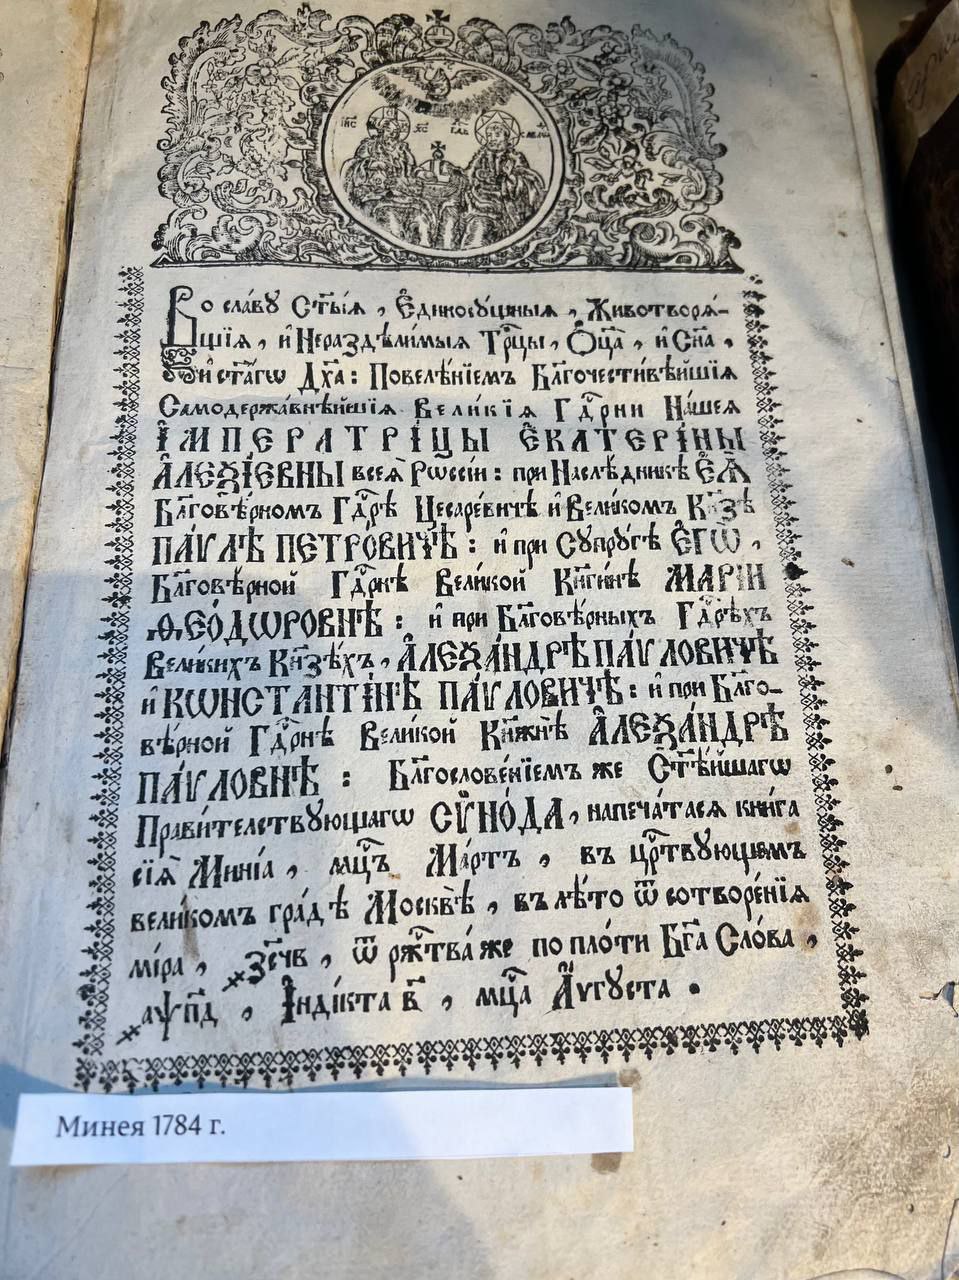 І҃ИС Х҃С
Во славу Ст҃ы́ѧ, Е҆диносу́щныѧ, Животворѧ́-
щїѧ, и҆ Нераздѣли́мыѧ Трⷪ҇цы, Ѻ҆ц҃а̀, и҆ Сн҃а,
и҆ ст҃а́гѡ Дх҃а: Повелѣ́нїемъ Бл҃гочести́вѣйшїѧ
Самодержа́внѣйшїѧ Вели́кїѧ Гдⷭ҇рни На́шеѧ
І҆МПЕРАТРІ́ЦЫ Е҆КАТЕРІ́НЫ
А҆ЛЕѮІ́ЕВНЫ всеѧ̀ Рѡссі́и: при Наслѣ́дникѣ Е҆Ѧ̀
Бл҃говѣ́рномъ Гдⷭ҇рѣ Цесаре́вичѣ и҆ Вели́комъ Кн҃зѣ
ПА́ѴЛѢ ПЕТРО́ВИЧѢ: и҆ при Супру́гѣ Е҆ГѠ̀,
Бл҃говѣ́рной Гдⷭ҇рнѣ Вели́кой Кнги́нѣ МАРІ́И
Ѳ҆ЕО́ДѠРОВНѢ: и҆ при Бл҃говѣ́рныхъ Гдⷭ҇рѣхъ
Вели́кихъ Кн҃зѣ́хъ, А҆ЛЕѮА́НДРѢ ПА́ѴЛОВИЧѢ
и҆ КѠНСТАНТІ́НѢ ПА́ѴЛОВИЧѢ: и҆ при Бл҃го-
вѣ́рной Гдⷭ҇рнѣ Вели́кой Кн҃жнѣ̀ А҆ЛЕѮА́НДРѢ
ПА́ѴЛОВНѢ: Бл҃гослове́нїемъ же Ст҃ѣ́йшагѡ
Прави́телствующагѡ СѴНО́ДА, напеча́тасѧ кни́га
сїѧ̀ Мині́а, мцⷭ҇ъ Ма́ртъ, въ црⷭ҇твующемъ
вели́комъ гра́дѣ Москвѣ̀, въ лѣ́то ѿ сотворе́нїѧ
мі́ра, ҂зс҃чв, ѿ ржⷭ҇тва́ же по пло́ти Бг҃а Сло́ва,
҂аѱп҃д, І҆ндікта в҃, мцⷭ҇а А҆́ѵгуста.
Минея 1784 г.